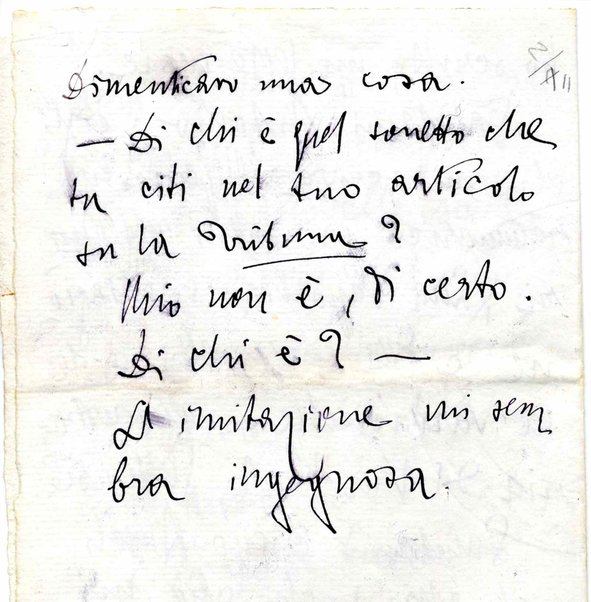 Dimenticavo una cosa.
— Di chi è quel sonetto che
tu citi nel tuo articolo
su la Tribuna?
Mio non è, di certo.
Di chi è? —
La imitazione mi sem
bra ingegnosa.